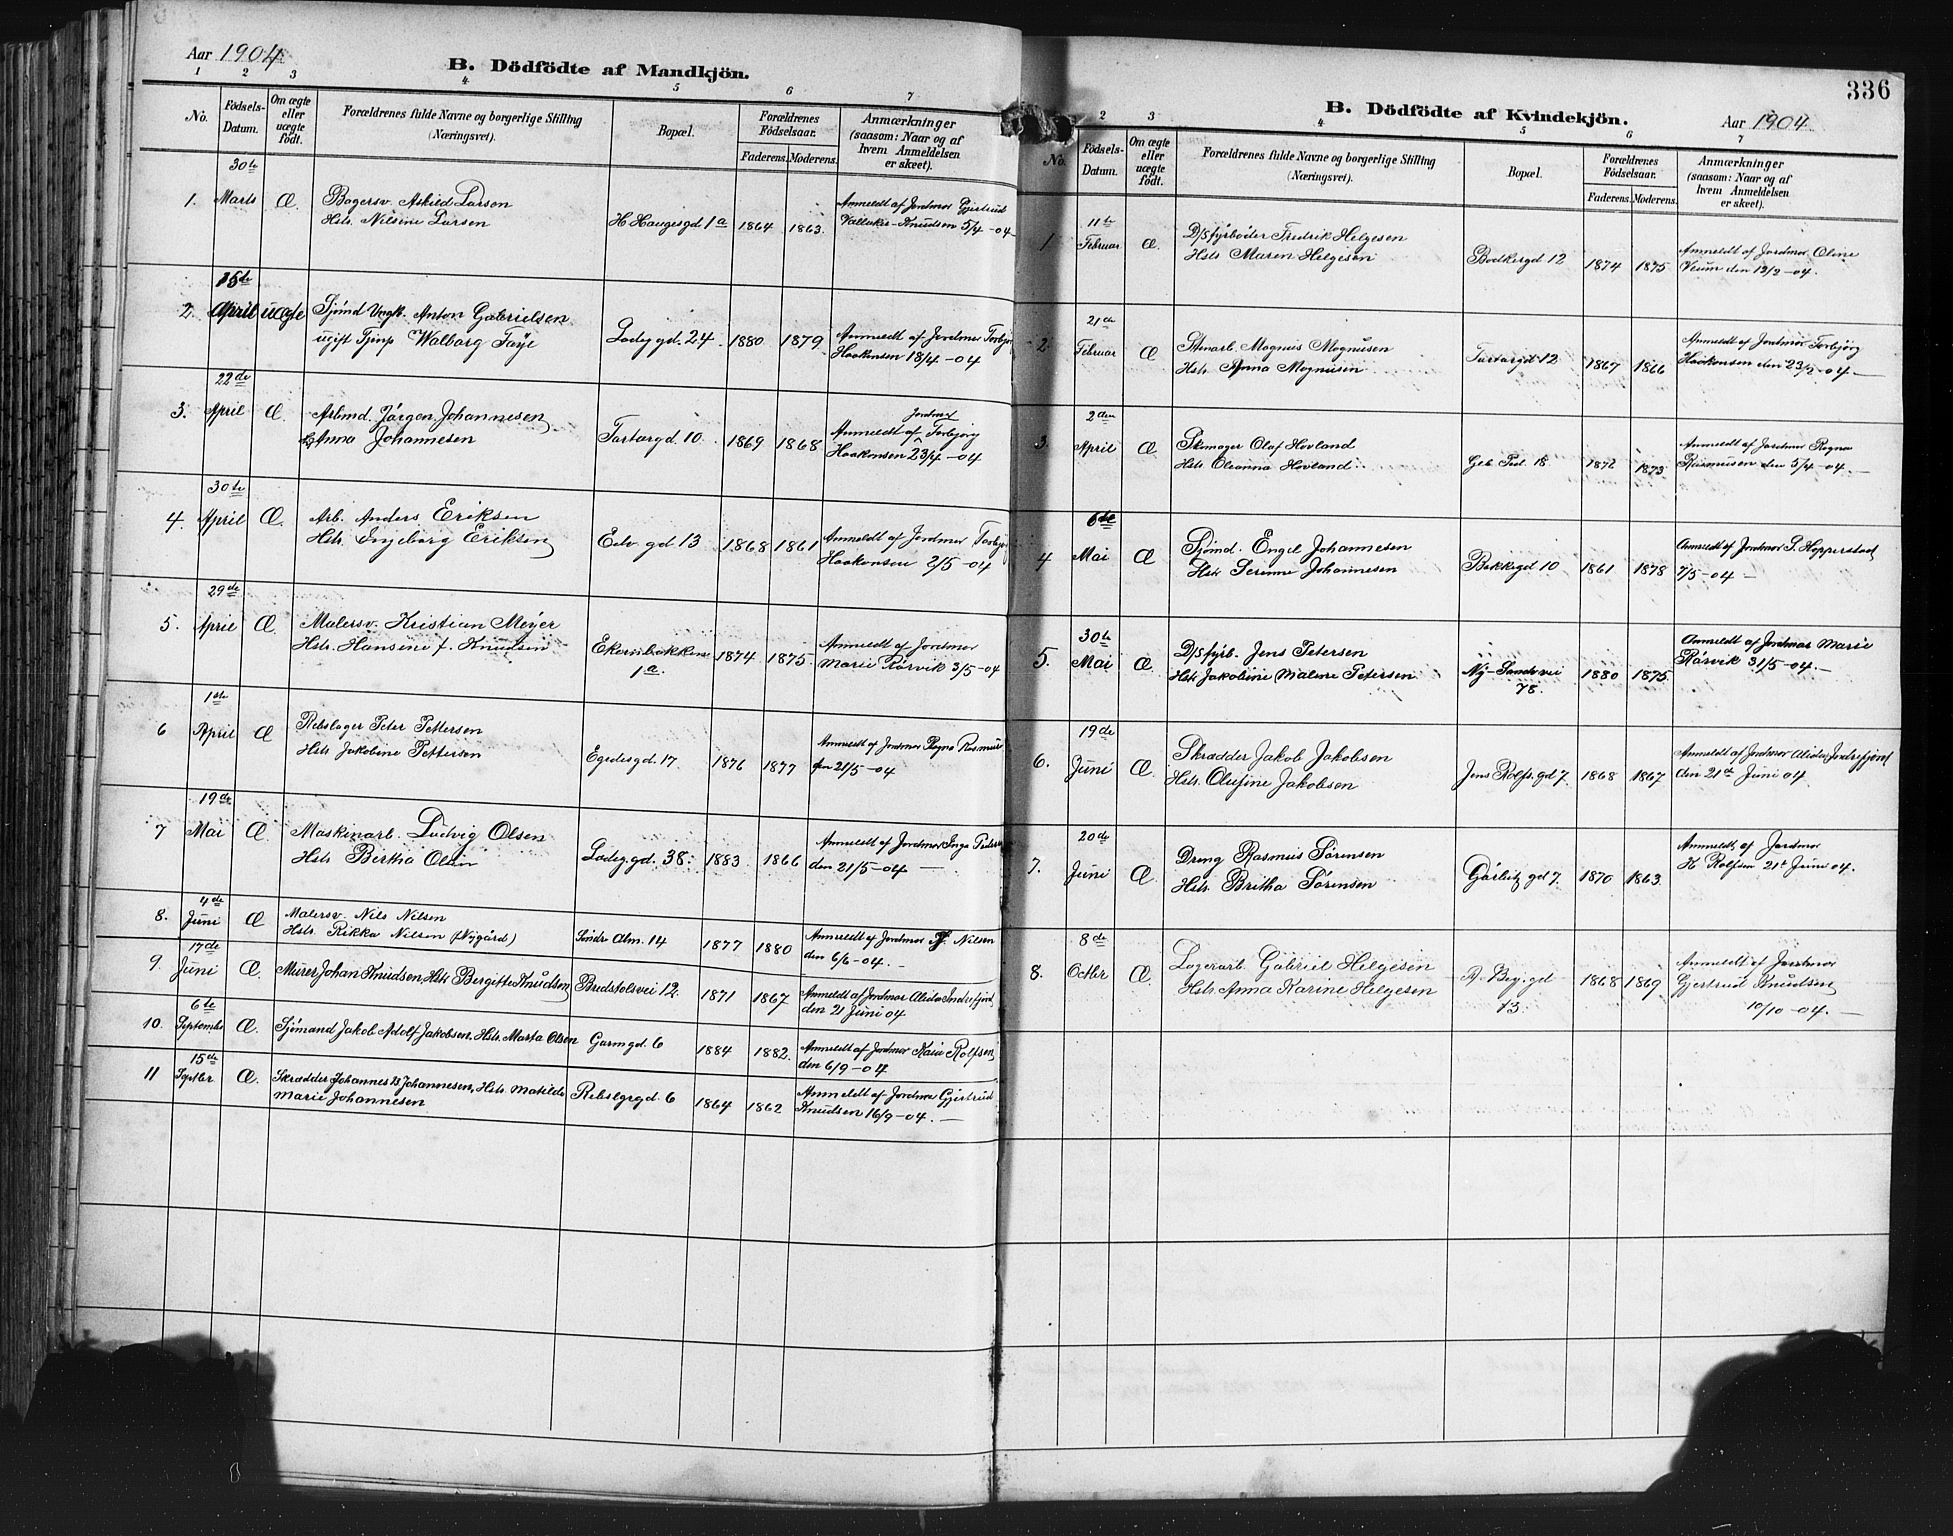 Aar 1904
B. Dödfödte af Mandkjön.
1 2 3 4. 5 6 7
No.
Födsels-
Datum.
Om ægte
eller
uægte
födt.
Forældrenes fulde Navne og borgerlige Stilling
(Næringsvei).
Bopæl.
Forældrenes
Födselsaar.
Faderens. Moderens.
Anmærkninger
(saasom: Naar og af
hvem Anmeldelsen
er skeet).
30te
1. Marts Æ Bagersv. Askild Larsen
Hstr. Nilsine Larsen
H. Haugesgd. 1a 1864 1863.
Anmeldt af Jordmor Gjertrud
Knudsen 5/4 -04
15de
2. April uægte Sjömd Ungk. Anton Gabrielsen
ugift Tjenp Walborg Faye
Ladegd. 24 1880 1879
Anmeldt af Jordmor Torbjör
Haakonsen 18/4 -04
22de
3. April Æ Arbmd. Jörgen Johannesen
Anna Johannesen
Tartargd. 10. 1869 1868
Jordmor
Anmeldt af Torbjörg
Haakonsen 23/4 -04
30te
4. April Æ. Arb. Anders Eriksen
Hstr. Ingeborg Eriksen
Edv. gd 13 1868 1861
Anmeldt af Jordmor Torbjö
Haakonsen 2/5 -04
29de
5. April Æ. Malersv. Kristian Meyer
Hstr. Hansine f. Knudsen
Ekernbakken
1a.
1874 1875
Anmeldt af Jordmor
Marie Rörvik 3/5 -04
1ste
6 April Æ Rebslager Peter Pettersen
Hstr. Jakobine Pettersen
Egedesgd. 17. 1876 1877
Anmeldt af Jordmor Ragna Rasmus
den 21/5 -04
19de
7 Mai Æ Maskinarb. Ludvig Olsen
Hstr. Bertha Olsen
Ladeg.gd. 38. 1883 1866
Anmeldt af Jordmor Inga
den 21/5 -04 —
4de
8. Juni Æ Malersv. Nils Nilsen
Hstr. Rikka Nilsen (Nygård)
Söndre Alm. 14 1877 1880
Anmeldt af Jordmor Nilsen
den 6/6 -04. —
17de
9. Juni Æ. Murer Johan Knudsen, Hstr. Bergitte Knudsen
Budstolsvei 12. 1871 1867
Anmeldt af Jordmor Alida Indrefjord
den 21 Juni 04
6te
10. Septembr Æ. Sjömand Jakob Adolf Jakobsen, Hstr. Marta Olsen
Garmgd. 6 1884 1882.
Anmeldt af Jordmor Kaia Rolfsen
den 6/9 -04
15de
11 Septbr Æ. Skrædder Johannes B. Johannesen, Hstr. Matilde
Marie Johannesen
Rebslgrgd. 6 1864 1862
Anmeldt af Jordmor Gjertrud
Knudsen 16/9 -04. —
336
B. Dödfödte af Kvindekjön.
Aar 1904
2 3 4 5 6 7
No.
Födsels-
Datum.
Om ægte
eller
uægte
födt.
Forældrenes fulde Navne og borgerlige Stilling
(Næringsvei).
Bopæl.
Forældrenes
Födselsaar.
Faderens. Moderens.
Anmærkninger
(saasom: Naar og af
hvem Anmeldelsen
er skeet).
11te
1 Februar Æ. D/Sfyrböder Fredrik Helgesen
Hstr. Maren Helgesen
Bödkergd 12 1874 1875
Anmeldt af Jordmor Oline
Veum den 12/2 -04.
21de
2. Februar Æ Stenarb. Magnus Magnusen
Hstr. Anna Magnusen
Tartargd 12 1867 1866
Anmeldt af Jordmor Torbjörg
Haakonsen den 23/2 -04. —
2den
3. April Æ Skomager Olaf Hovland
Hstr. Oleanna Hovland
18. 1872 1873
Anmeldt af Jordmor Ragna
Rasmusen den 5/4 -04. —
6te
4 Mai Æ Sjömd. Engel Johannesen
Hstr. Serinne Johannesen
Bakkegd 10 1861 1878
Anmeldt af Jordmor S. Hopperstad
7/5 -04 —
30te
5. Mai Æ D/Sfyrb. Jens Petersen
Hstr. Jakobine Malene Petersen
Ny-Sandvei
78.
1880 1875
Anmeldt af Jordmor Marie
Rörvik 31/5 -04. —
19de
6. Juni Æ. Skrædder Jakob Jakobsen
Hstr. Olufine Jakobsen
Jens Rolfs.gd 7. 1868 1867
Anmeldt af Jordmor Alida Indrefjord
den 21de Juni 04.
20de
7. Juni Æ. Dreng Rasmus Sörensen
Hstr. Britha Sörensen
Görbitz gd 7. 1870 1863.
Anmeldt af Jordmor
K Rolfsen 21de Juni 04.
8de
8. Octbr Æ. Lagerarb. Gabriel Helgesen
Hstr. Anna Karine Helgesen
gd
13.
1868 1869
Anmeldt af Jordmor
Gjertrud Knudsen
10/10 -04. —